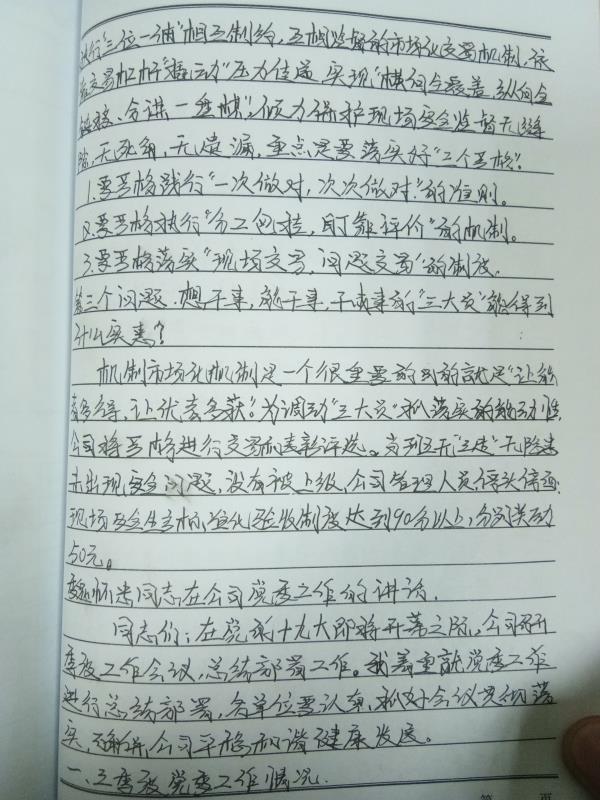 执行“三位一体”相互制约、互相监督的市场化交易机制,依
靠交易杠杆“撬动”压力传递,实现“横向全覆盖,纵向全
链接、合讲一盘棋”,倾力保护现场安全监督无缝
隙,无死角,无遗漏,重点是要落实好“三个严格”。
1.要严格践行“一次做对,次次做对”的准则。
2.要严格执行“分工包挂,盯靠评价”的机制。
3.要严格落实“现场交易,问题交易”的制度。
第三个问题,想干事,能干事,干成事的“三大员”能得到
什么实惠?
机制市场化机制是一个很重要的目的就是“让能
者多得,让优者多获”。为调动“三大员”抓落实的能动性,
公司将严格进行交易和考核评选。当班无“三违”无隐患
未出现安全问题,没有被上级、公司管理人员停头停面
现场安全生产标准化验收制度达到90分以上,分别奖励
50元。
怀忠同志在公司党委工作的讲话.
同志们:在党的十九大即将开幕之际,公司召开
季度工作会议,总结部署工作。我着重就党委工作
进行总结部署,各单位要认真,抓好会议贯彻落
实,确保公司平稳和谐健康发展。
一、三季度党委工作情况.
第 页